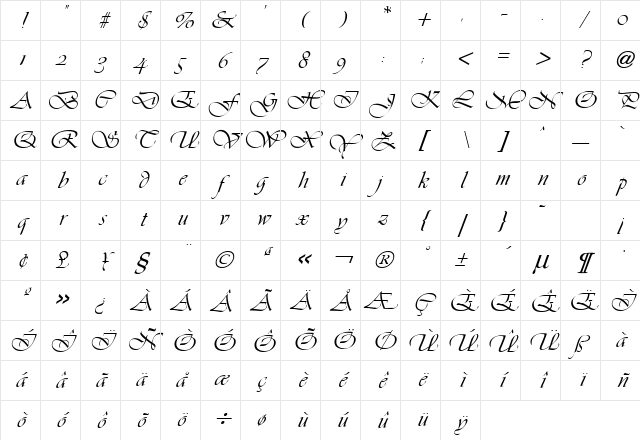 ! " # $ % & ' ( ) * + , - . / 0
1 2 3 4 5 6 7 8 9 : ; < = > ? @
A B C D E F G H I J K L M N O P
Q R S T U V W X Y Z [ \ ] ^ _ `
a b c d e f g h i j k l m n o p
q r s t u v w x y z { | } ~ ¡
¢ £ ƒ § ¨ © ª « ¬ ® ° ± ´ µ ¶ ·
º » ¿ À Á Â Ã Ä Å Æ Ç È É Ê Ë Ì
Í Î Ï Ñ Ò Ó Ô Õ Ö Ø Ù Ú Û Ü ß à
á â ã ä å æ ç è é ê ë ì í î ï ñ
ò ó ô õ ö ÷ ø ù ú û ü ÿ